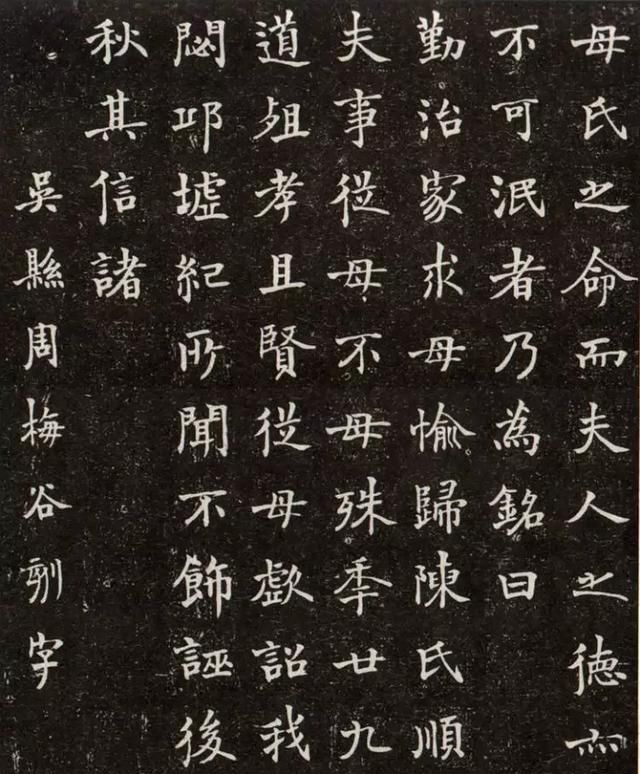 母氏之命而夫人之徳亦
不可泯者乃為銘曰
勤治家求母愉歸陳氏順
夫事從母不母殊秊廿九
道殂孝且賢從母歔詔我
閟邛墟紀所聞不飾誣後
秋其信諸
吳縣周梅谷刻字